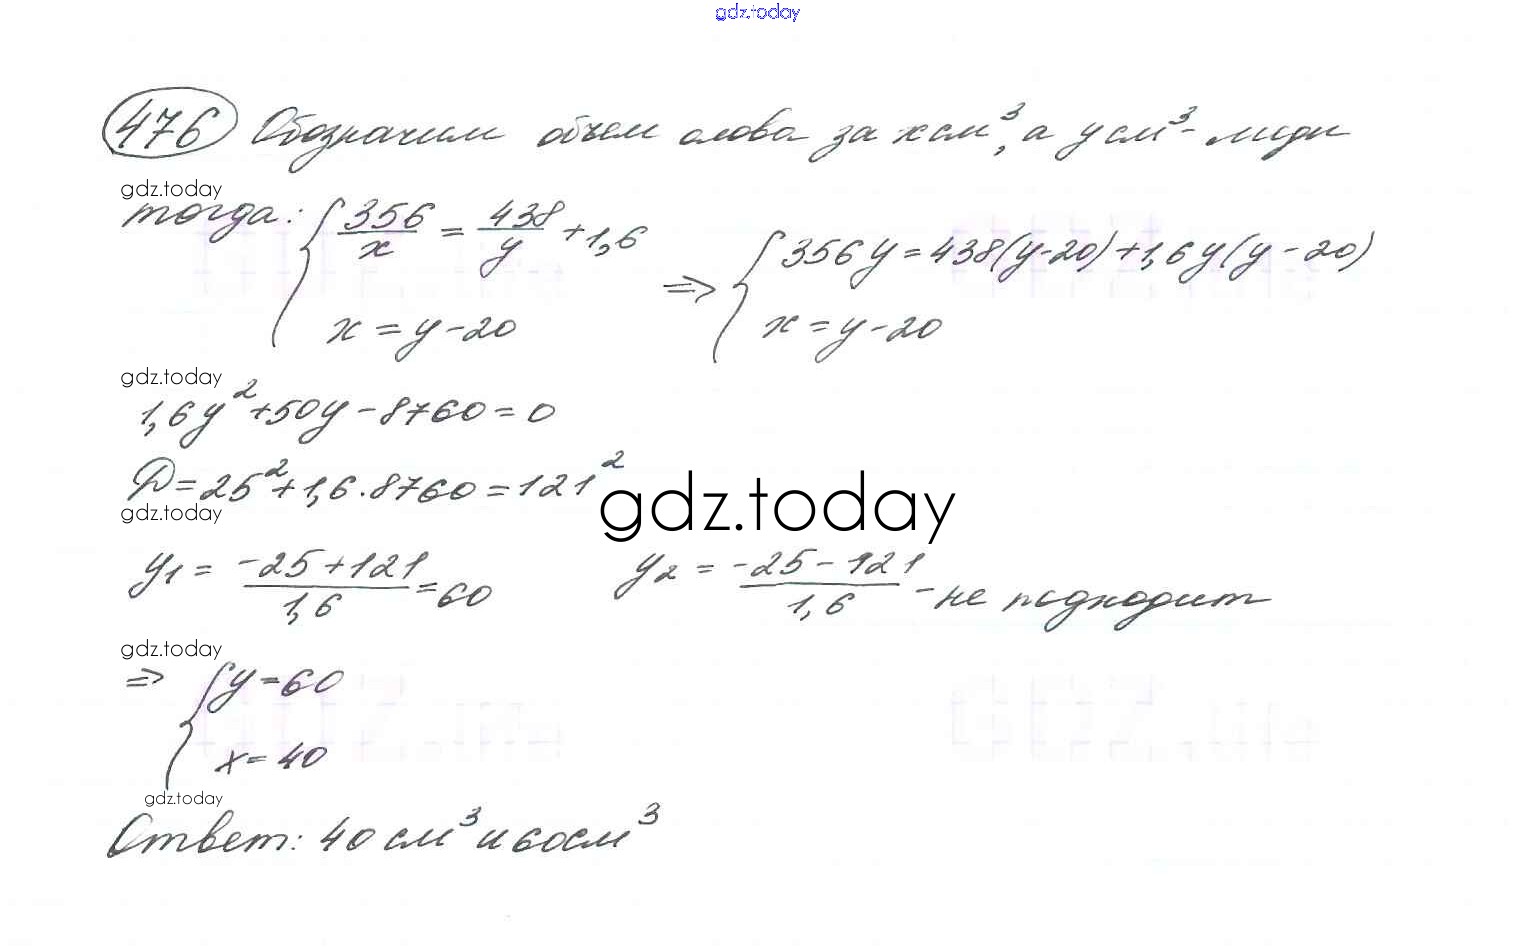 gdz.today
476 Обозначим объем олова за x см³, а y см³ - меди
gdz.today
тогда: { 356/x = 438/y + 1,6 ⇒ { 356y = 438(y-20) + 1,6y(y-20)
x = y - 20 x = y - 20
gdz.today
1,6y² + 50y - 8760 = 0
D = 25² + 1,6 · 8760 = 121²
gdz.today
gdz.today
y₁ = (-25 + 121)/1,6 = 60 y₂ = (-25 - 121)/1,6 - не подходит
gdz.today
⇒ { y = 60
x = 40
gdz.today
Ответ: 40 см³ и 60 см³